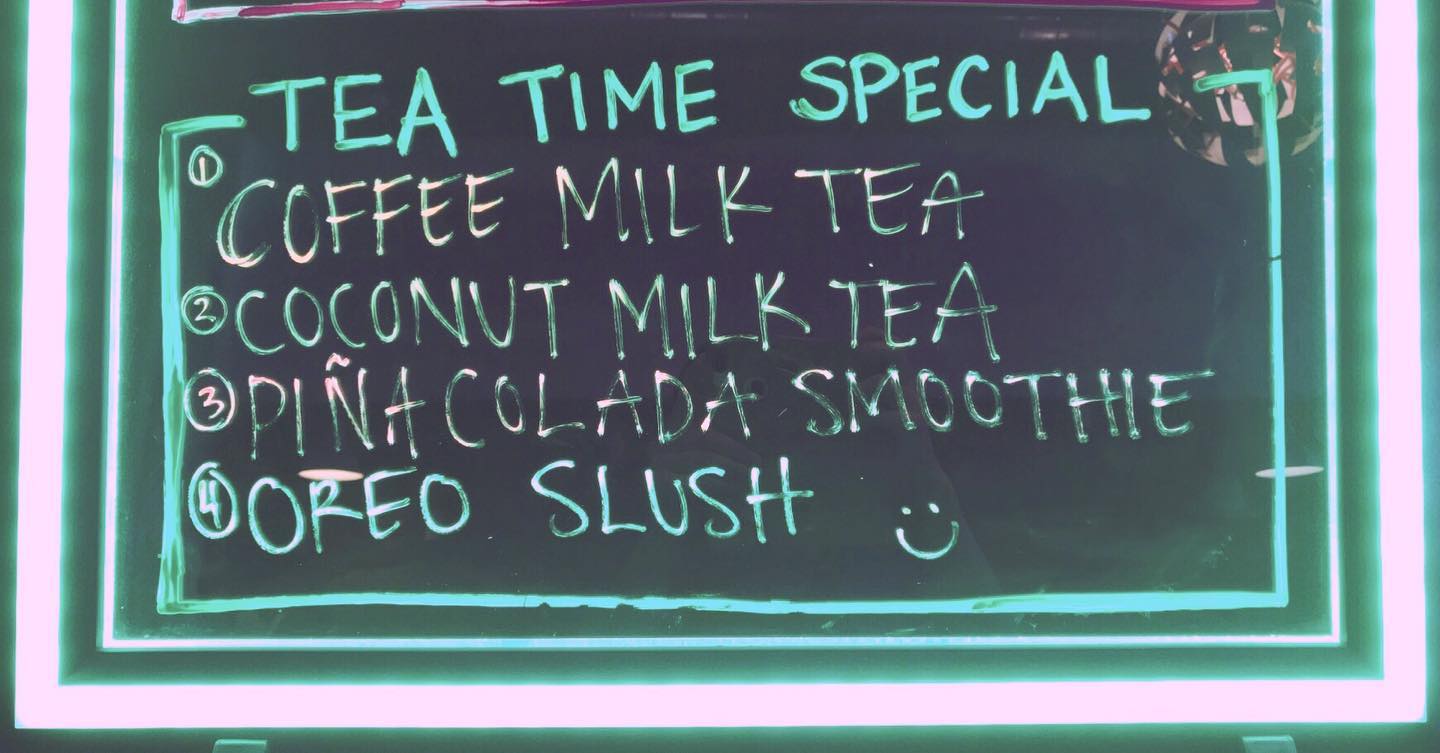 TEA TIME SPECIAL
① COFFEE MILK TEA
② COCONUT MILK TEA
③ PIÑA COLADA SMOOTHIE
④ OREO SLUSH